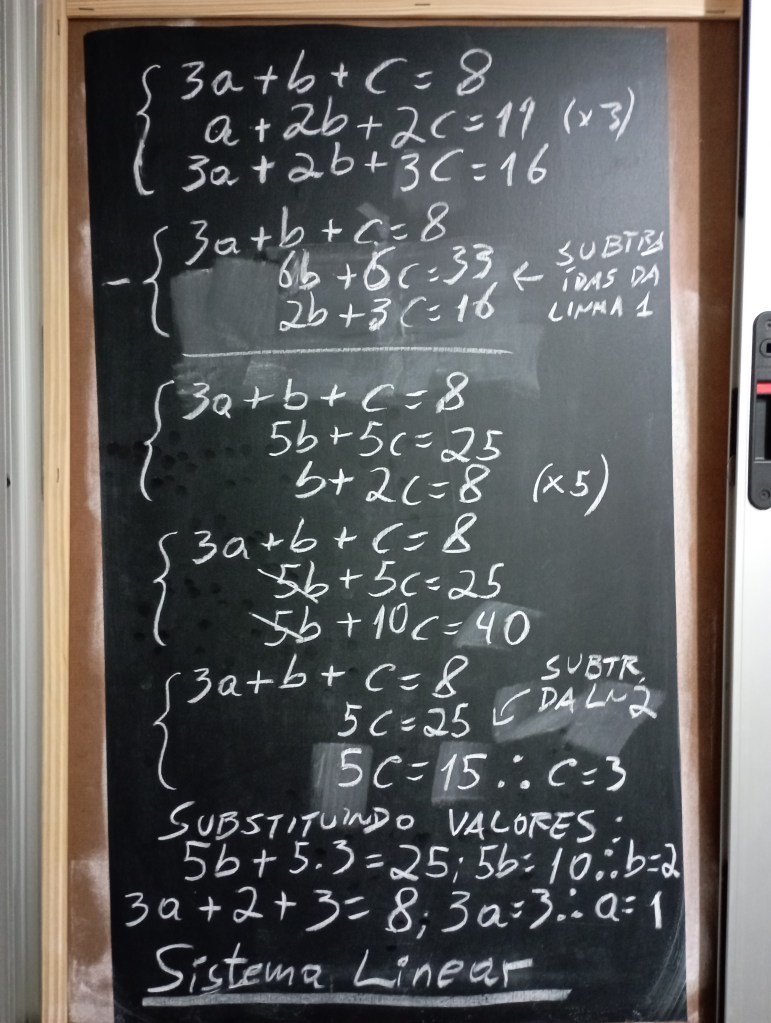 3a + b + c = 8
a + 2b + 2c = 11 (x3)
3a + 2b + 3c = 16
3a + b + c = 8
- 6b + 6c = 33 ← SUBTRA
2b + 3c = 16 ÍDAS DA
LINHA 1
3a + b + c = 8
5b + 5c = 25
b + 2c = 8 (x5)
3a + b + c = 8
5b + 5c = 25
5b + 10c = 40
3a + b + c = 8 SUBTR.
5c = 25 ↙ DA LN 2
5c = 15 ∴ c = 3
SUBSTITUINDO VALORES:
5b + 5.3 = 25; 5b = 10 ∴ b = 2
3a + 2 + 3 = 8; 3a = 3 ∴ a = 1
Sistema Linear